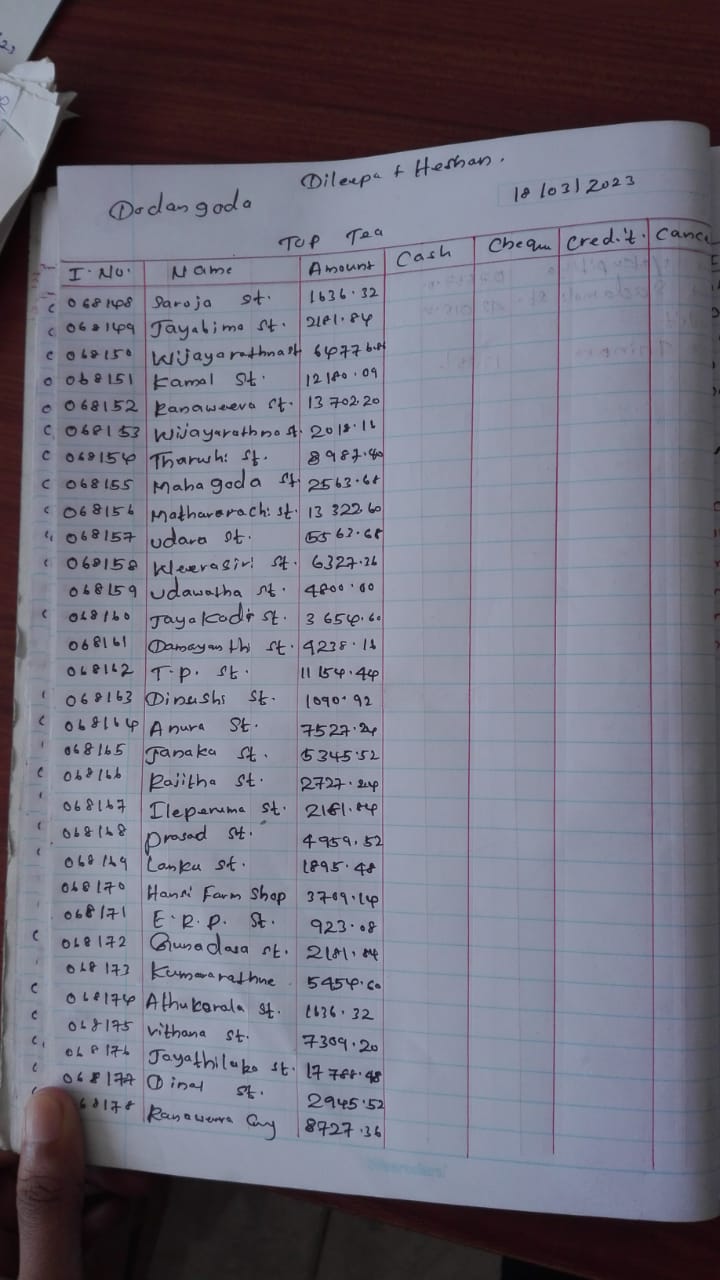 Dileepa + Heshan.
Dodangoda
18/03/2023
TOP Tea
I. No. Name Amount Cash Cheque Credit. Cance
068148 Saroja st. 1636.32
068149 Jayabima St. 2181.84
068150 Wijayarathna st
068151 Kamal St. 12180.09
068152 Ranaweera st. 13702.20
068153 Wijayarathna st. 2018.16
068154 Tharushi St. 8987.40
068155 Mahagoda st. 2563.68
068156 Mathararachi st. 13322.60
068157 Udara st. 5563.68
068158 Weerasiri st. 6327.36
068159 Udawatha st. 4800.00
068160 Jayakodi st. 3654.60
068161 Damayanthi st. 4238.16
068162 T.P. St. 11154.44
068163 Dinushi St. 1090.92
068164 Anura St. 7527.24
068165 Janaka St. 5345.52
068166 Rajitha St. 2727.24
068167 Ileperuma st. 2181.84
068168 Prasad St. 4959.52
068169 Lanka st. 1895.48
068170 Hansi Farm Shop 3709.14
068171 E.R.P. St. 923.08
068172 Gunadasa st. 2181.84
068173 Kumararathne 5454.60
068174 Athukorala st. 1636.32
068175 Vithana st. 7309.20
068176 Jayathilaka st. 17788.48
068177 Dinal St. 2945.52
68178 Ranaweera 8727.36